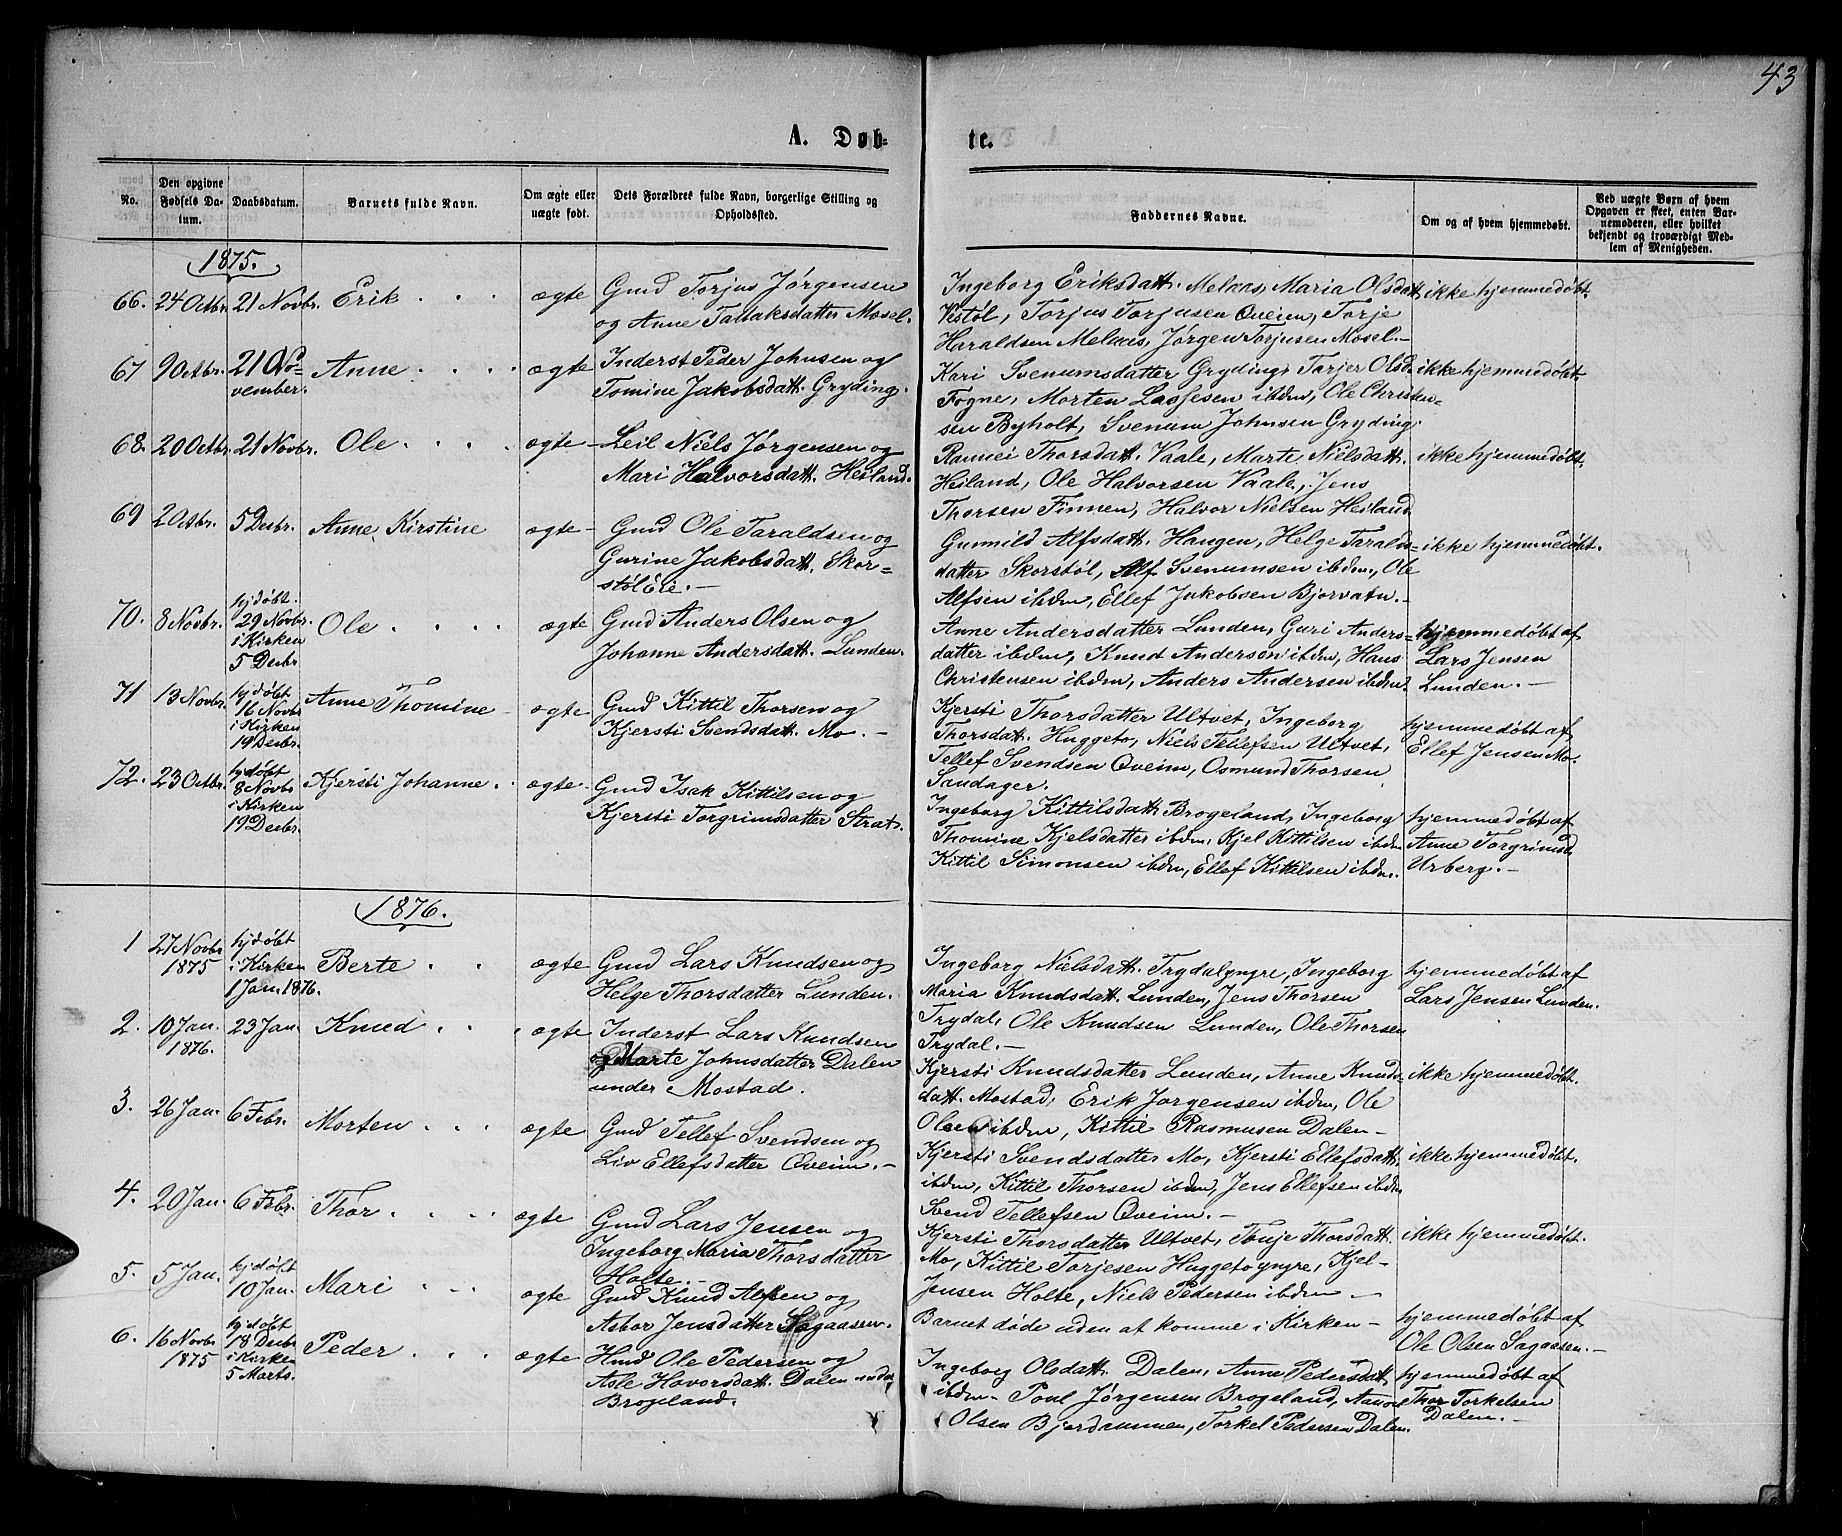 43
A. Døb-
te.
No.
Den opgivne Fødsels Da-tum.
Daabsdatum.
Barnets fulde Navn.
Om ægte eller uægte født.
Dets Forældres fulde Navn, borgerlige Stilling og Opholdssted.
Faddernes Navne.
Om og af hvem hjemmedøbt.
Ved uægte Børn af hvem Opgaven er skeet, enten Bar-nemoderen, eller hvilket bekjendt og troværdigt Med-lem af Menigheden.
1875.
66. 24 Octbr. 21 Novbr. Erik ægte Gmd Torjus Jørgensen
og Anne Tallaksdatter Mosel.
Ingeborg Eriksdatt. Melaas, Maria Olsdatt. ikke hjemmedøbt.
Vestøl, Torjus Torjusen Øveien, Torje
Haraldsen Melaas, Jørgen Torjusen Mosel.-
67 9 Octbr. 21 No-vember. Anne ægte Inderst Peder Johnsen og
Tomine Jakobsdatt. Gryding.
Kari Svenumsdatter Gryding, Tarjer Olsd ikke hjemmedøbt.
Fogne, Morten Lassesen ibdm, Ole Christen=
sen Byholt, Svenum Johnsen Gryding.
68. 20 Octbr. 21 Novbr. Ole ægte Leil. Niels Jørgensen og
Mari Halvorsdatt. Heiland.
Rannei Thorsdatt. Vaale, Marte Nielsdatt. ikke hjemmedøbt.
Heiland, Ole Halvorsen Vaale, Jens
Thorsen Finnen, Halvor Nielsen Heiland
69 2 Octbr. 5 Decbr. Anne Kirstine ægte Gmd Ole Taraldsen og
Gurine Jakobsdatt. Skor=
støl Eie.-
Gunnild Alfsdatt. Haugen, Helge Taralds= ikke hjemmedøbt.
datter Skorstøl, Alf Svenumsen ibdm, Ole
Alfsen ibdm, Ellef Jakobsen Bjorvatn.-
70. 8 Novbr. hjdøbt. 29 Novbr. i Kirken 5 Decbr Ole ægte Gmd Anders Olsen og
Johanne Andersdatt. Lunden.
Anne Andersdatter Lunden, Guri Anders= hjemmedøbt af
datter ibdm, Knud Andersen ibdm, Hans Lars Jensen
Christensen ibdm, Anders Andersen ibdm. Lunden.-
71 13 Novbr. hjdøbt 16 Novbr i Kirken 19 Decbr. Anne Thomine ægte Gmd Kittil Thorsen og
Kjersti Svendsdatt. Mo.-
Kjersti Thorsdatter Ultvet, Ingeborg hjemmedøbt af
Thorsdatt. Huggeto, Niels Tellefsen Ultvet, Ellef Jensen Mo.
Tellef Svendsen Øveim, Osmund Thorsen
Sandager.
72. 23 Octbr. hjdøbt 8 Novbr i Kirken 19 Decbr. Kjersti Johanne ægte Gmd Isak Kittilsen og
Kjersti Torgrimsdatter Strat.
Ingeborg Kittilsdatt. Brogeland, Ingeborg hjemmedøbt af
Thomine Kjelsdatter ibdm, Kjel Kittilsen ibdm Anne Torgrimsd.
Kittil Simonsen ibdm, Ellef Kittilsen ibdm. Urberg.-
1876.
1 27 Novbr 1875 hjdøbt i Kirken 1 Jan. 1876. Berte ægte Gmd Lars Knudsen og
Helge Thorsdatter Lunden.
Ingeborg Nielsdatt. Trydalyngre, Ingeborg hjemmedøbt af
Maria Knudsdatt. Lunden, Jens Thorsen Lars Jensen Lunden.
Trydal, Ole Knudsen Lunden, Ole Thorsen
Trydal.-
2. 10 Jan. 1876. 23 Jan. Knud ægte Inderst Lars Knudsen
og Marte Johnsdatter Dalen
under Mostad.
Kjersti Knudsdatter Lunden, Anne Knuds= ikke hjemmedøbt.
datt. Mostad, Erik Jørgensen ibdm, Ole
Olsen ibdm, Kittil Rasmusen Dalen-
3. 26 Jan. 6 Febr. Morten ægte Gmd Tellef Svendsen og
Liv Ellefsdatter Øveim.-
Kjersti Svendsdatter Mo, Kjersti Ellefsdatt. ikke hjemmedøbt.
ibdm, Kittil Thorsen ibdm, Jens Ellefsen ibdm
Svend Tellefsen Øveim.-
4. 20 Jan. 6 Febr. Thor ægte Gmd Lars Jensen og
Ingeborg Maria Thorsdatter
Holte.-
Kjersti Thorsdatter Ultvet, Tonje Thorsdatt. ikke hjemmedøbt.
Mo, Kittil Torjesen Huggetoyngre, Kjel-
Jensen Holte, Niels Pedersen ibdm-
5. 5 Jan. hjdøbt 10 Jan. Mari ægte Gmd Knud Alfsen og
Asbor Jensdatter Sagaasen.
Barnet døde uden at komme i Kirken- hjemmedøbt af
Ole Olsen Sagaasen.-
6. 16 Novbr 1875 hjdøbt 18 Decbr i Kirken 5 Marts. Peder ægte Hmd Ole Pedersen og
Asle Havorsdatt. Dalen under
Brogeland.
Ingeborg Olsdatt. Dalen, Anne Pedersdatt. hjemmedøbt af
ibdm- Poul Jørgensen Brogeland, Aanon Thor Torkelsen
Olsen Bjerdammen, Torkel Pedersen Dalen. Dalen.-